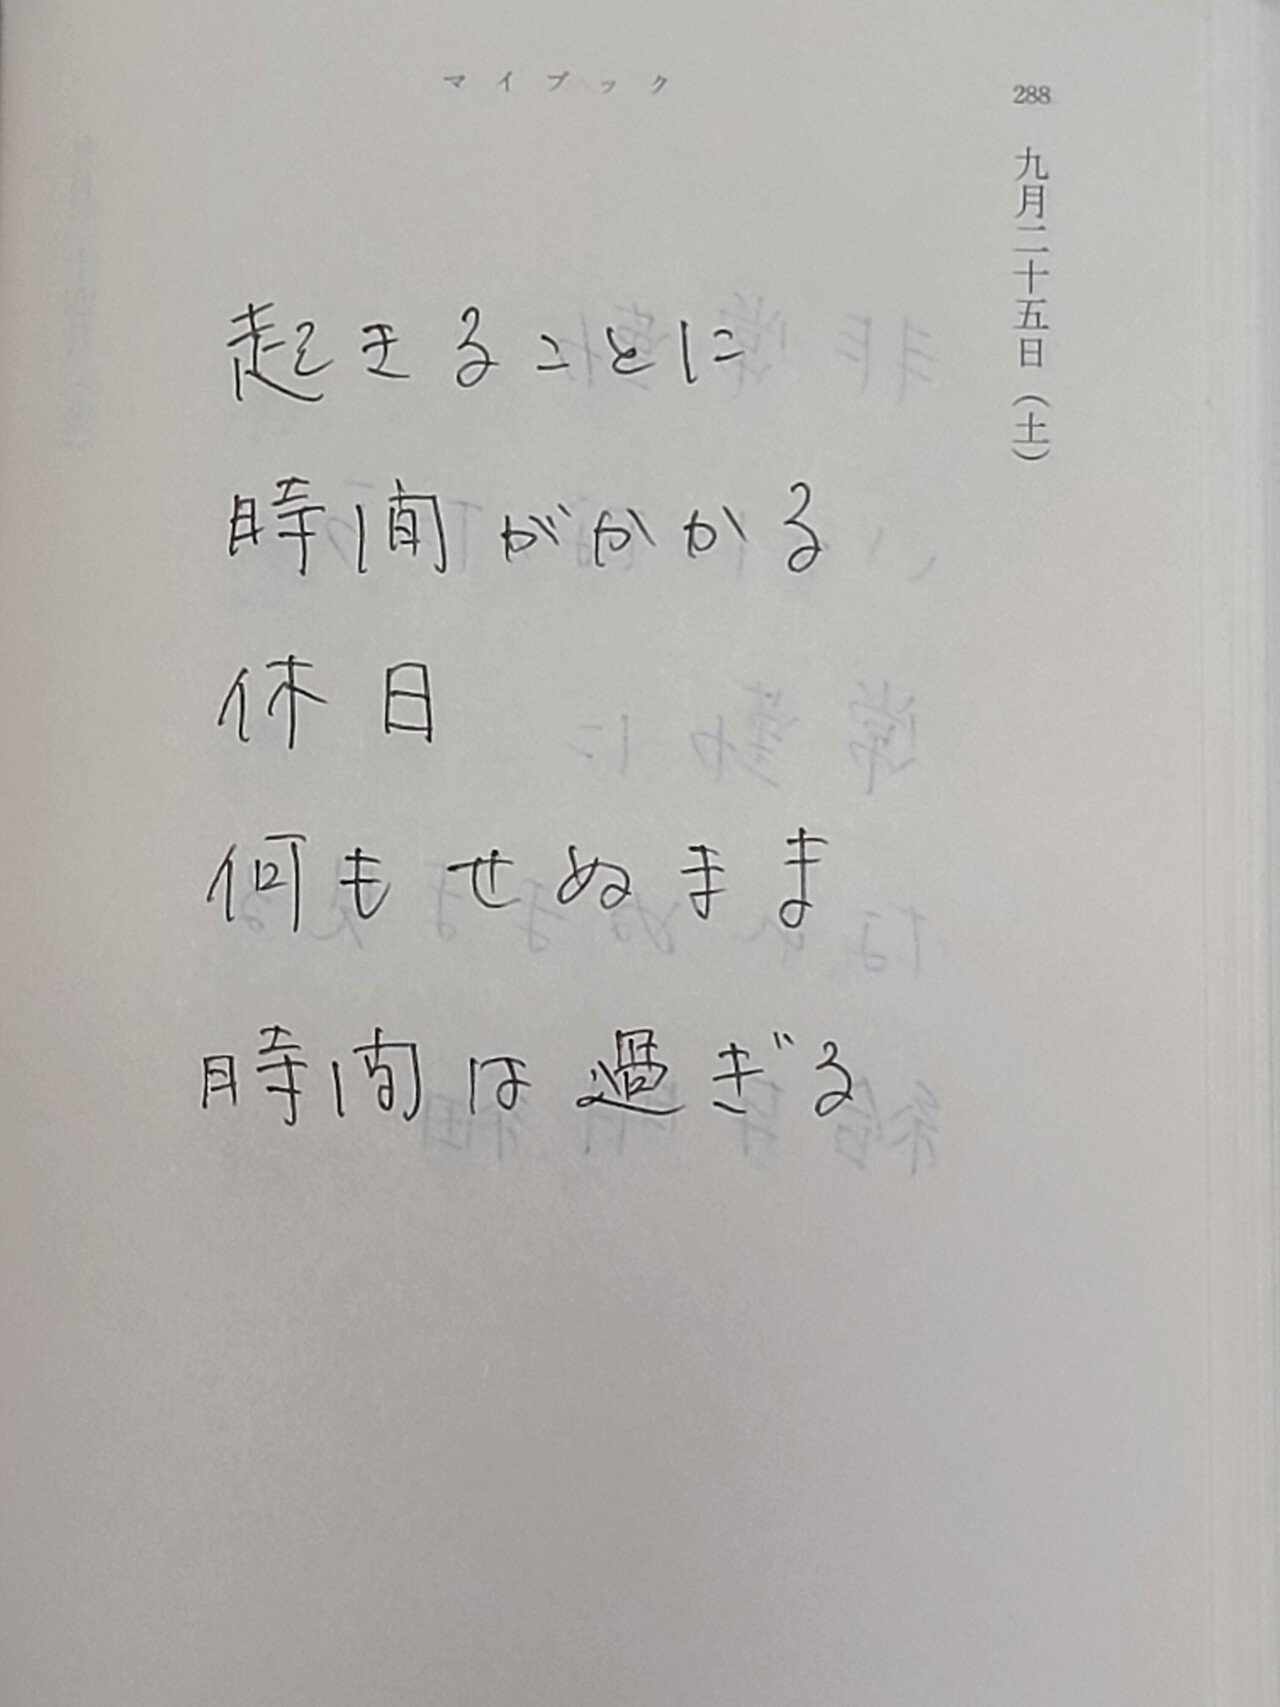 マイブック
288
九月二十五日（土）
起きることに
時間がかかる
休日
何もせぬまま
時間は過ぎる